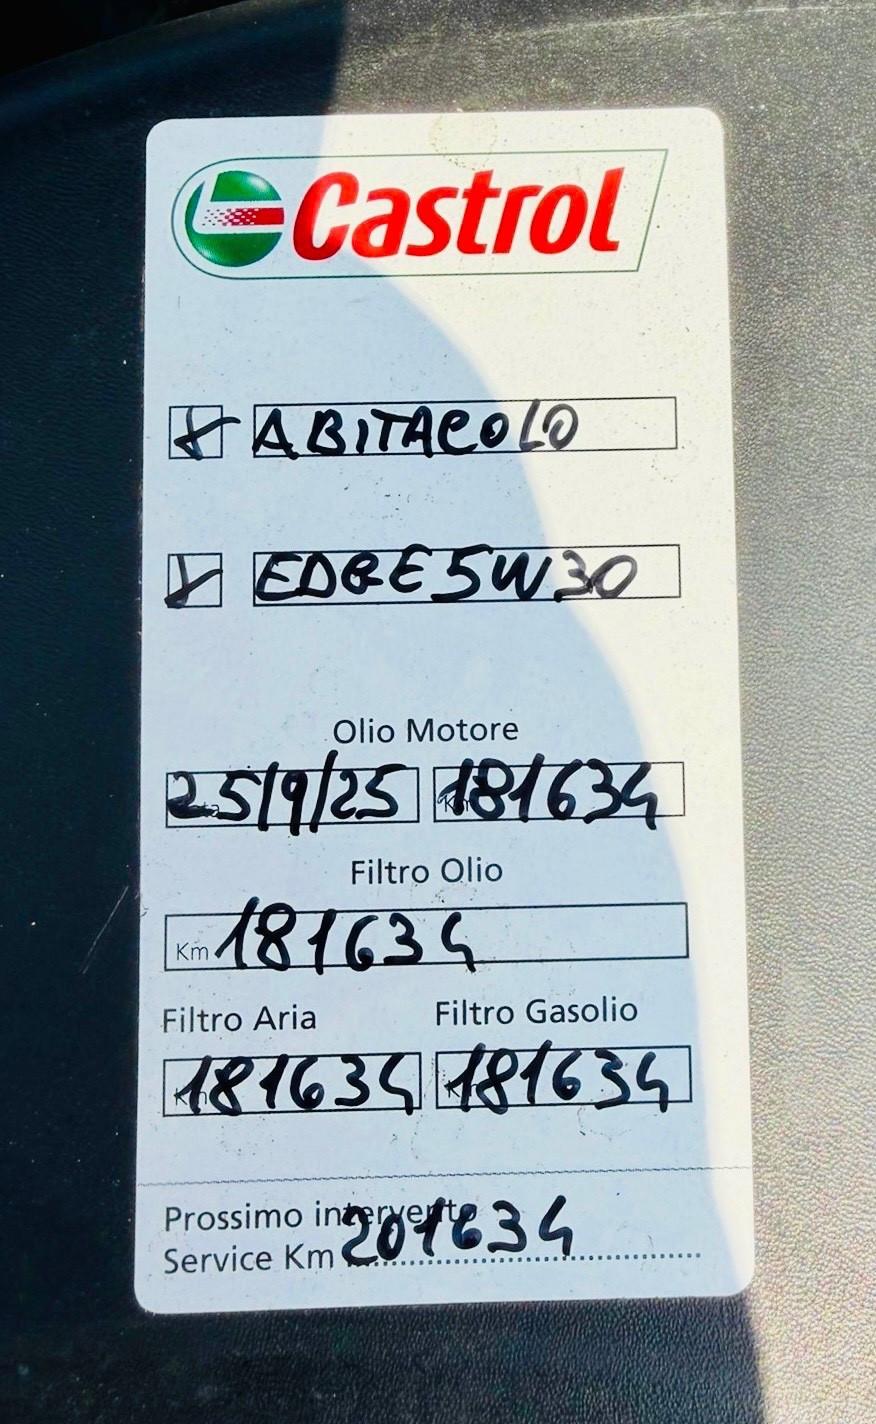 Castrol
ABITACOLO
EDGE 5W30
Olio Motore
25/9/25 Km 181634
Filtro Olio
Km 181634
Filtro Aria Filtro Gasolio
Km 181634 181634
Prossimo intervento
Service Km 201634